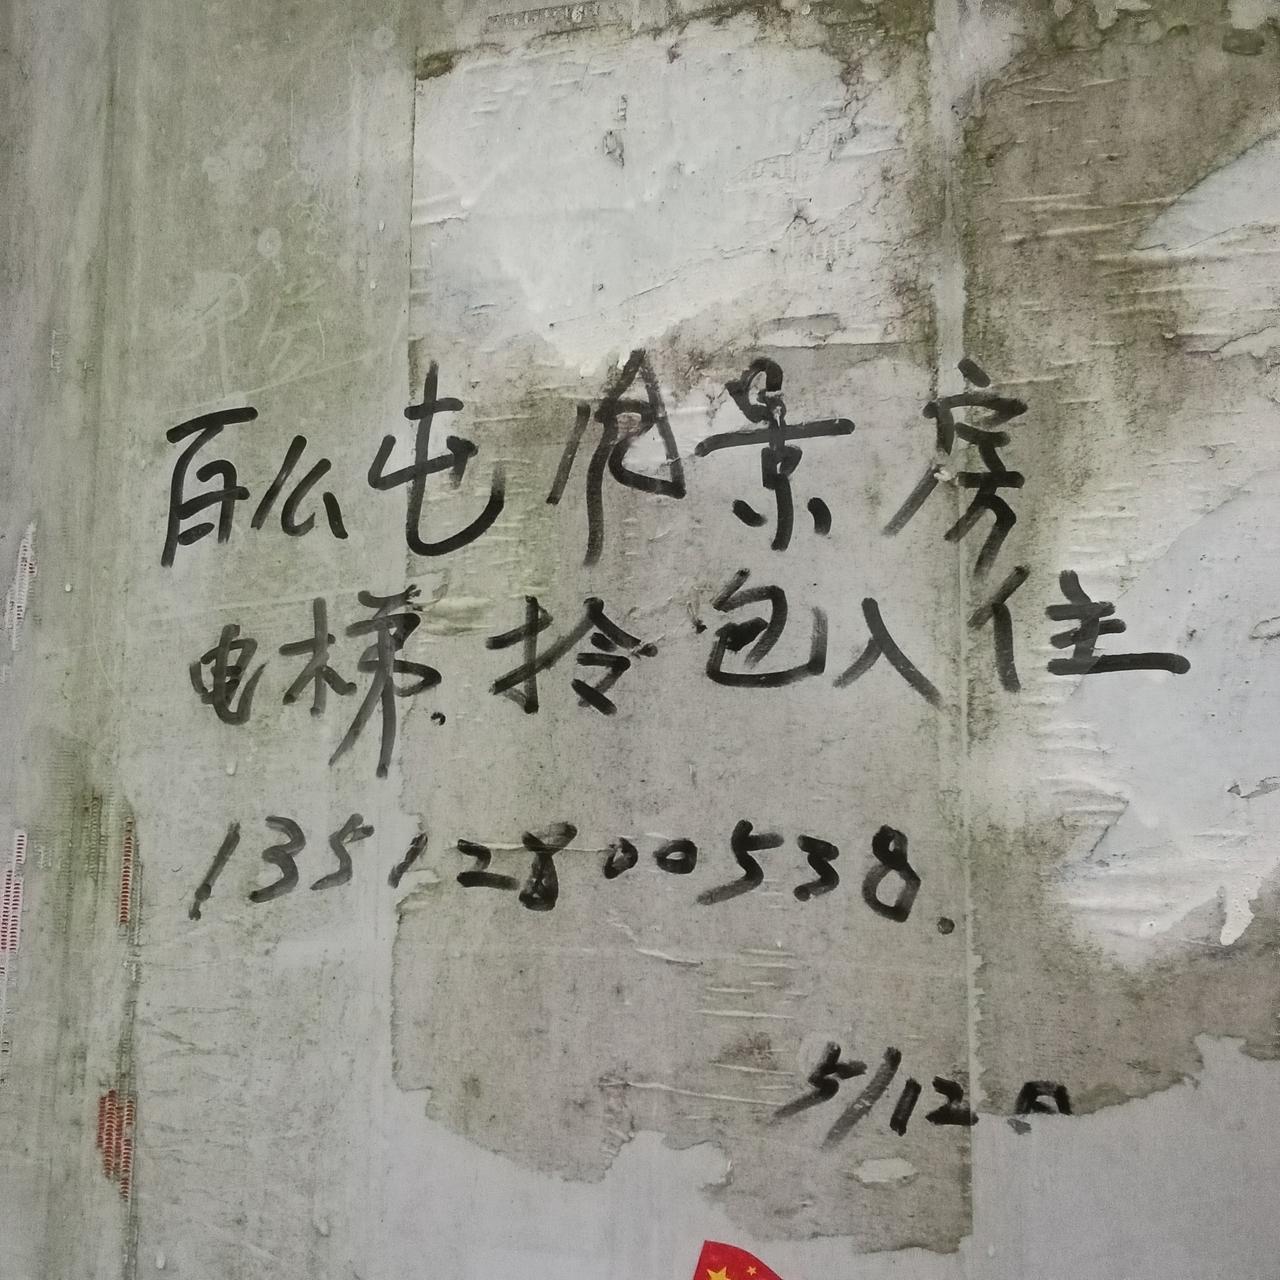 百么屯风景房
电梯.拎包入住
13512800538.
5/12日